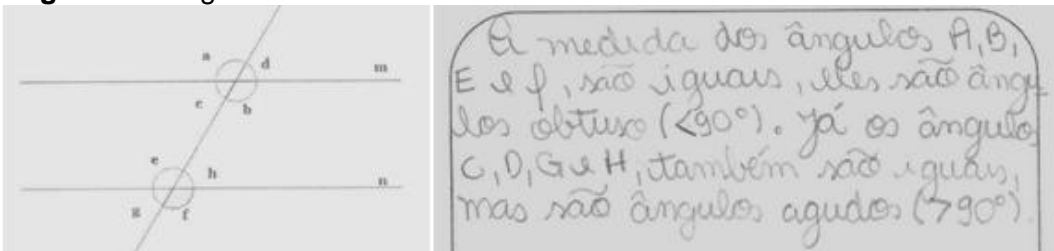 a
d
m
c
b
e
h
n
g
f
A medida dos ângulos A, B,
E e f, são iguais, eles são ângu
los obtuso (<90°). Já os ângulo
C, D, G e H, também são iguais,
mas são ângulos agudos (>90°).